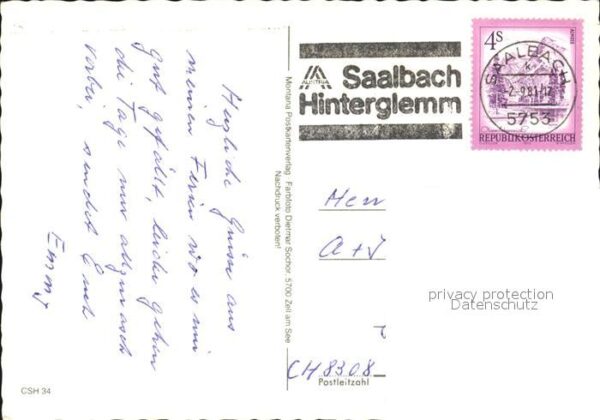 Herzliche Grüsse aus
meinen Ferien wo es mir
gut gefällt, leider gehen
die Tage nur allzu rasch
vorbei, sendet Euch
Emmy
CSH 34
Montana Postkartenverlag Farbfoto Dietmar Sochor, 5700 Zell am See
Nachdruck verboten!
AUSTRIA
Saalbach
Hinterglemm
4S
REPUBLIK ÖSTERREICH
SAALBACH
5753
Herr
A + J
privacy protection
Datenschutz
CH 8308
Postleitzahl